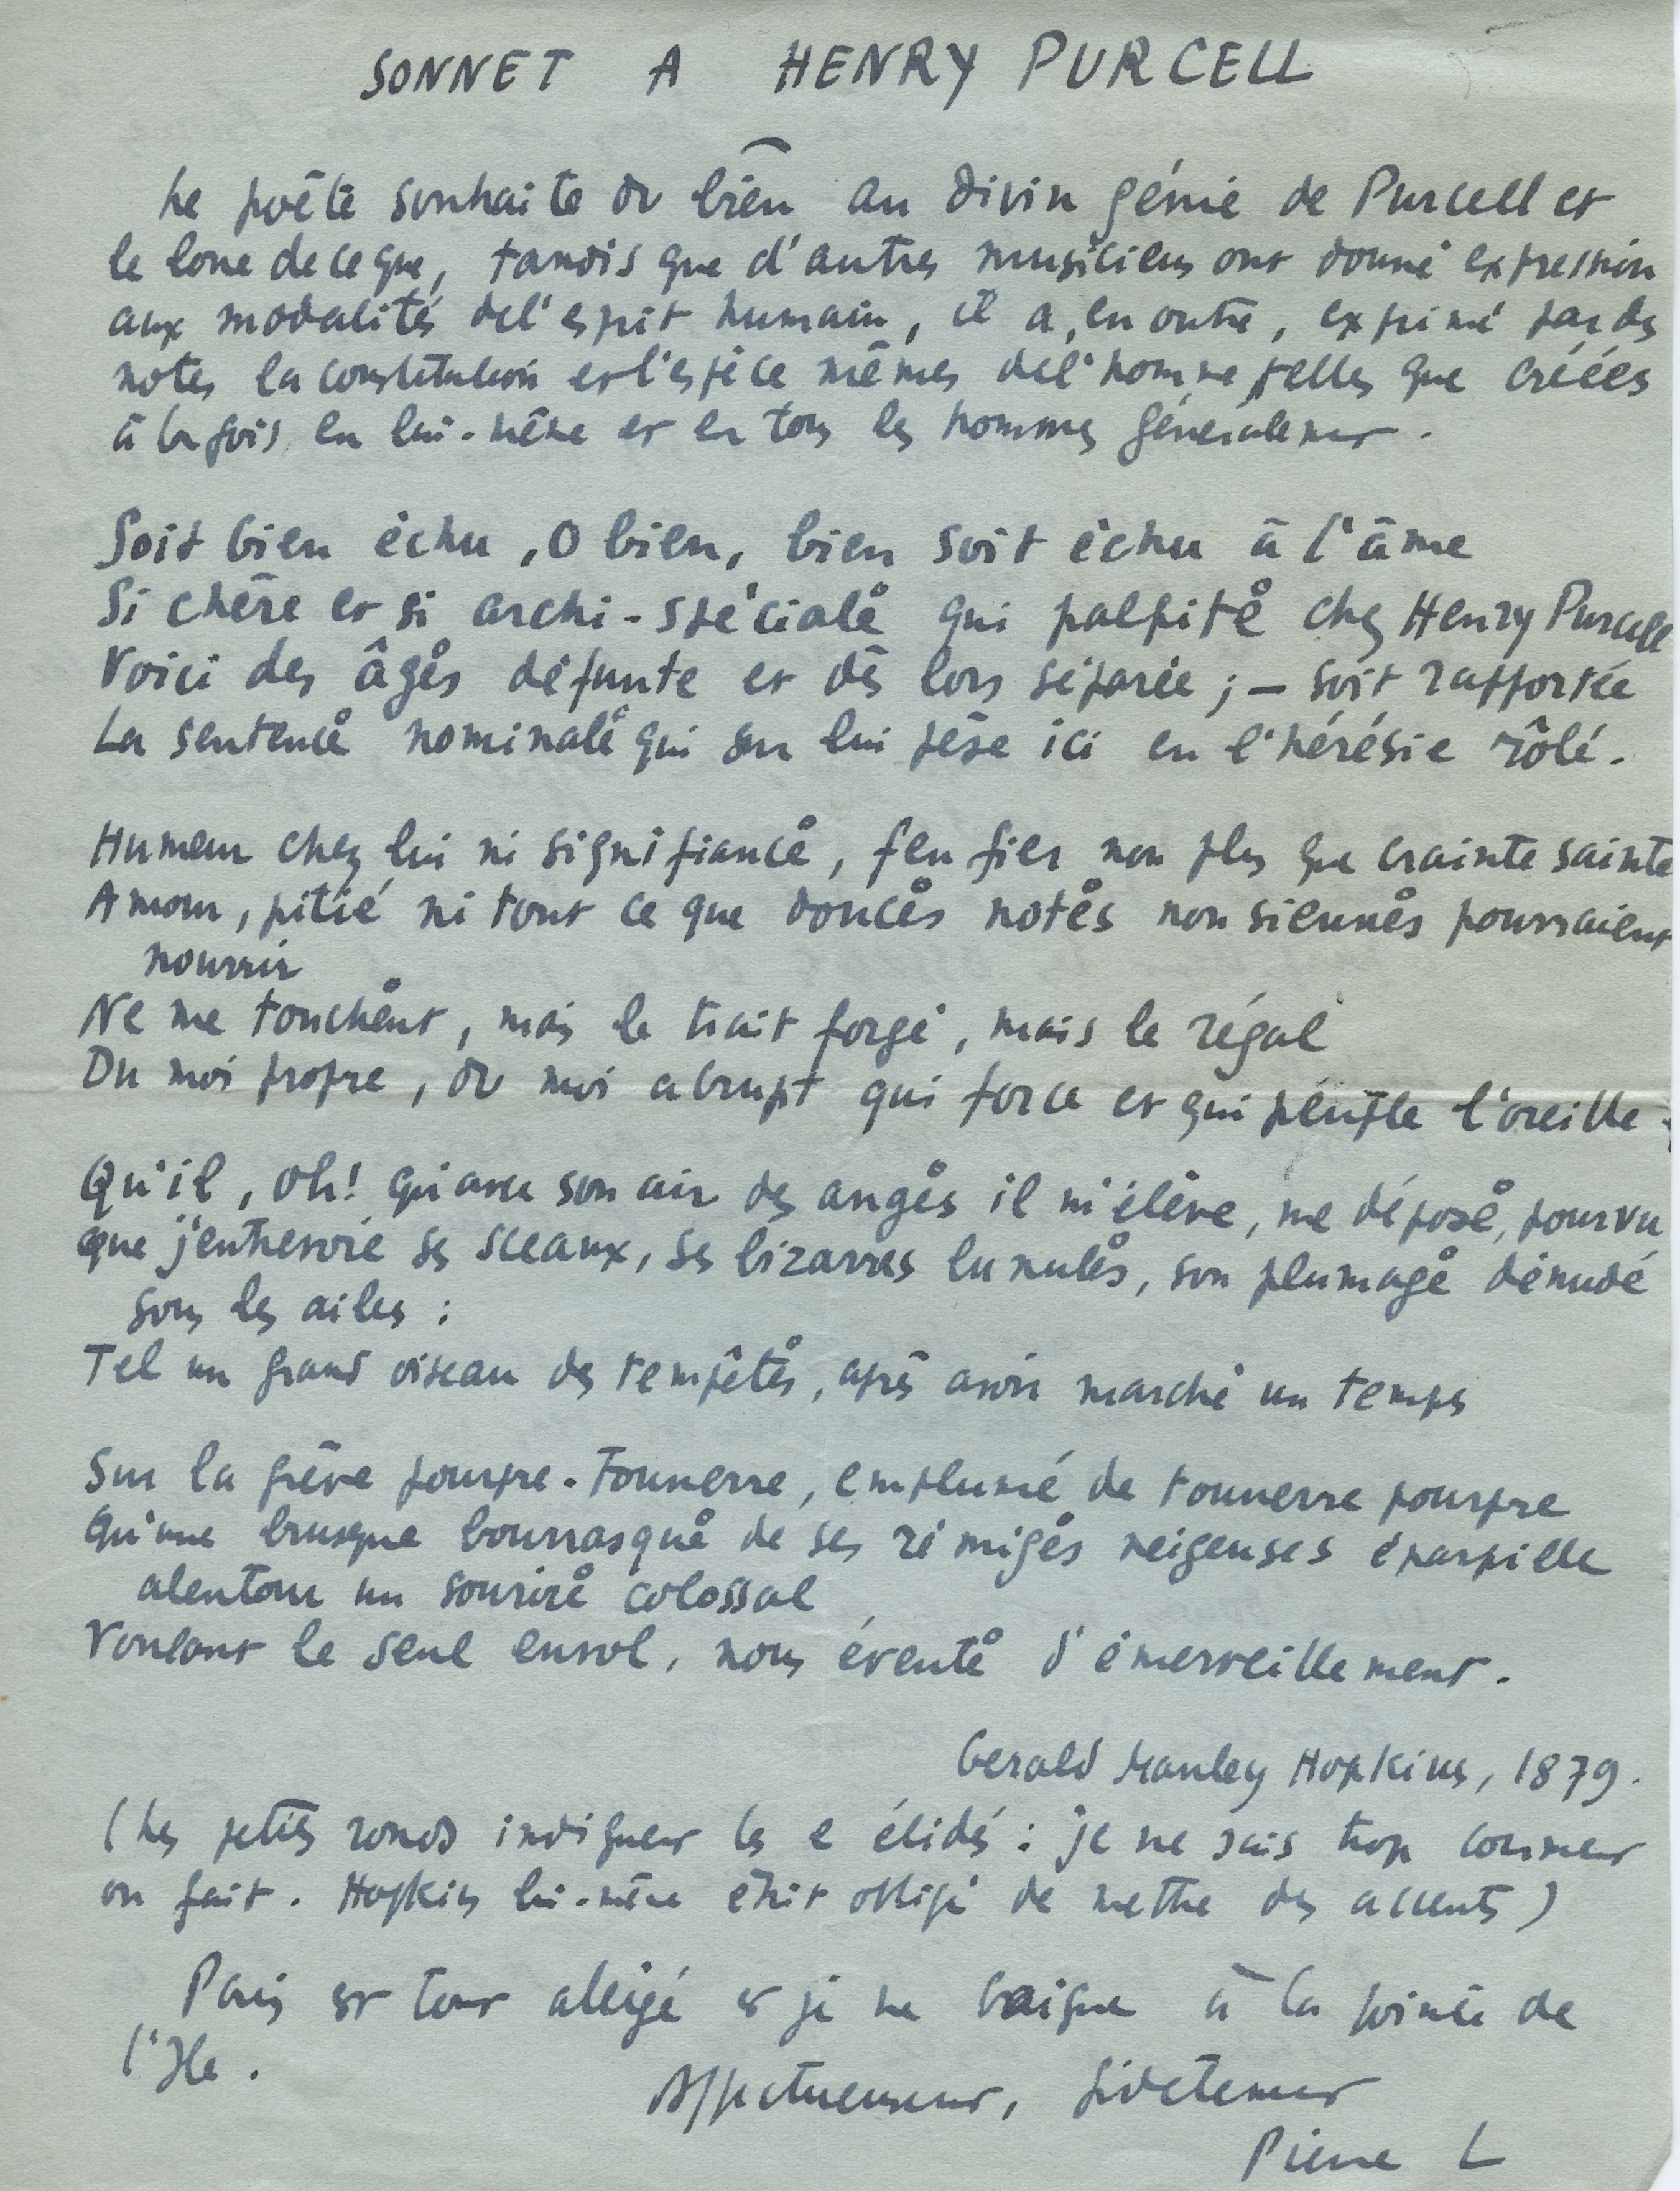 SONNET A HENRY PURCELL
Le poète souhaite du bien au divin génie de Purcell et
le loue de ce que, tandis que d'autres musiciens ont donné expression
aux modalités de l'esprit humain, il a, en outre, exprimé par des
notes la constitution et l'espèce mêmes de l'homme, telles que créées
à la fois en lui-même et en tous les hommes généralement.
Soit bien échu, O bien, bien soit échu à l'âme
Si chère et si archi-spéciale qui palpite chez Henry Purcell
Voici des âges défunte et dès lors séparée ; – soit rapportée
La sentence nominale qui sur lui pèse ici en l'hérésie rôlé.
Humeur chez lui ni signifiance, feu fier non plus que crainte sainte
Amour, pitié ni tout ce que douces notes non siennes pourraient
nourrir
Ne me touchent, mais le trait forgé, mais le régal
Du moi propre, du moi abrupt qui force et qui peuple l'oreille.
Qu'il, Oh! qu'avec son air des anges il m'élève, me dépose, pourvu
que j'entrevoie ses sceaux, ses bizarres lunules, son plumage dénudé
sous les ailes :
Tel un grand oiseau des tempêtes, après avoir marché un temps
Sur la grève pourpre-tonnerre, emplumé de tonnerre pourpre
Qu'une brusque bourrasque de ses rémiges neigeuses éparpille
alentour un sourire colossal
Voulant le seul envol, nous évente d'émerveillement.
Gerald Manley Hopkins, 1879.
(Les petits ronds indiquent les e élidés : je ne sais trop comment
on fait. Hopkins lui-même était obligé de mettre des accents)
Paris est tout allégé et je me baigne à la pointe de
l'Ile.
Affectueusement, fidèlement
Pierre L